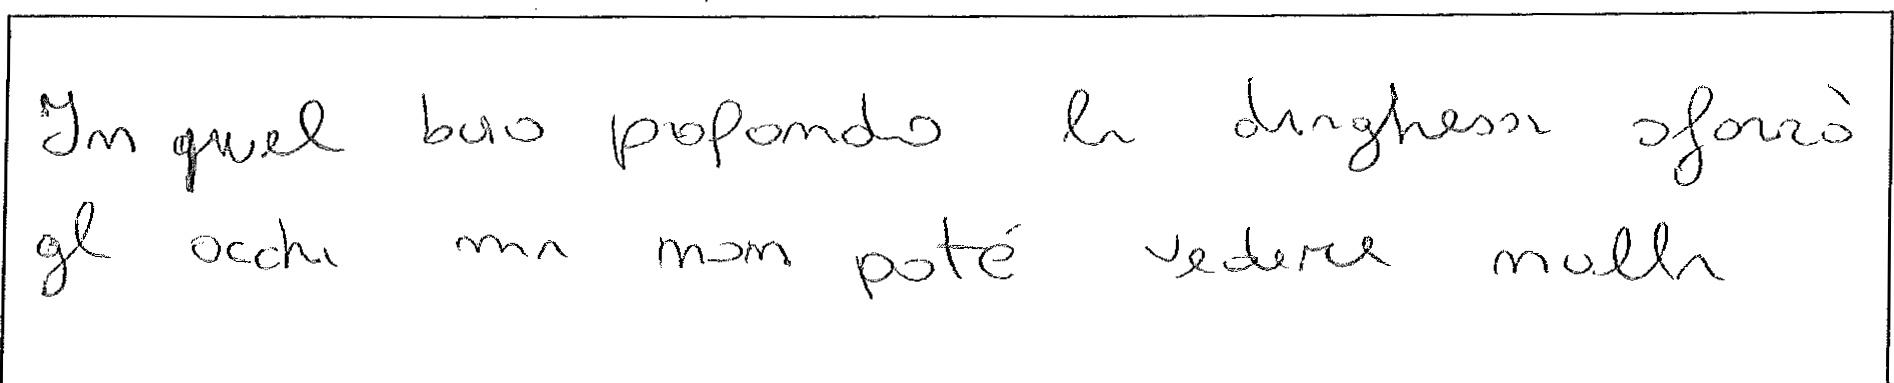 In quel buio pofondo la draghessa sforzò
gl occhi ma non poté vedere nulla